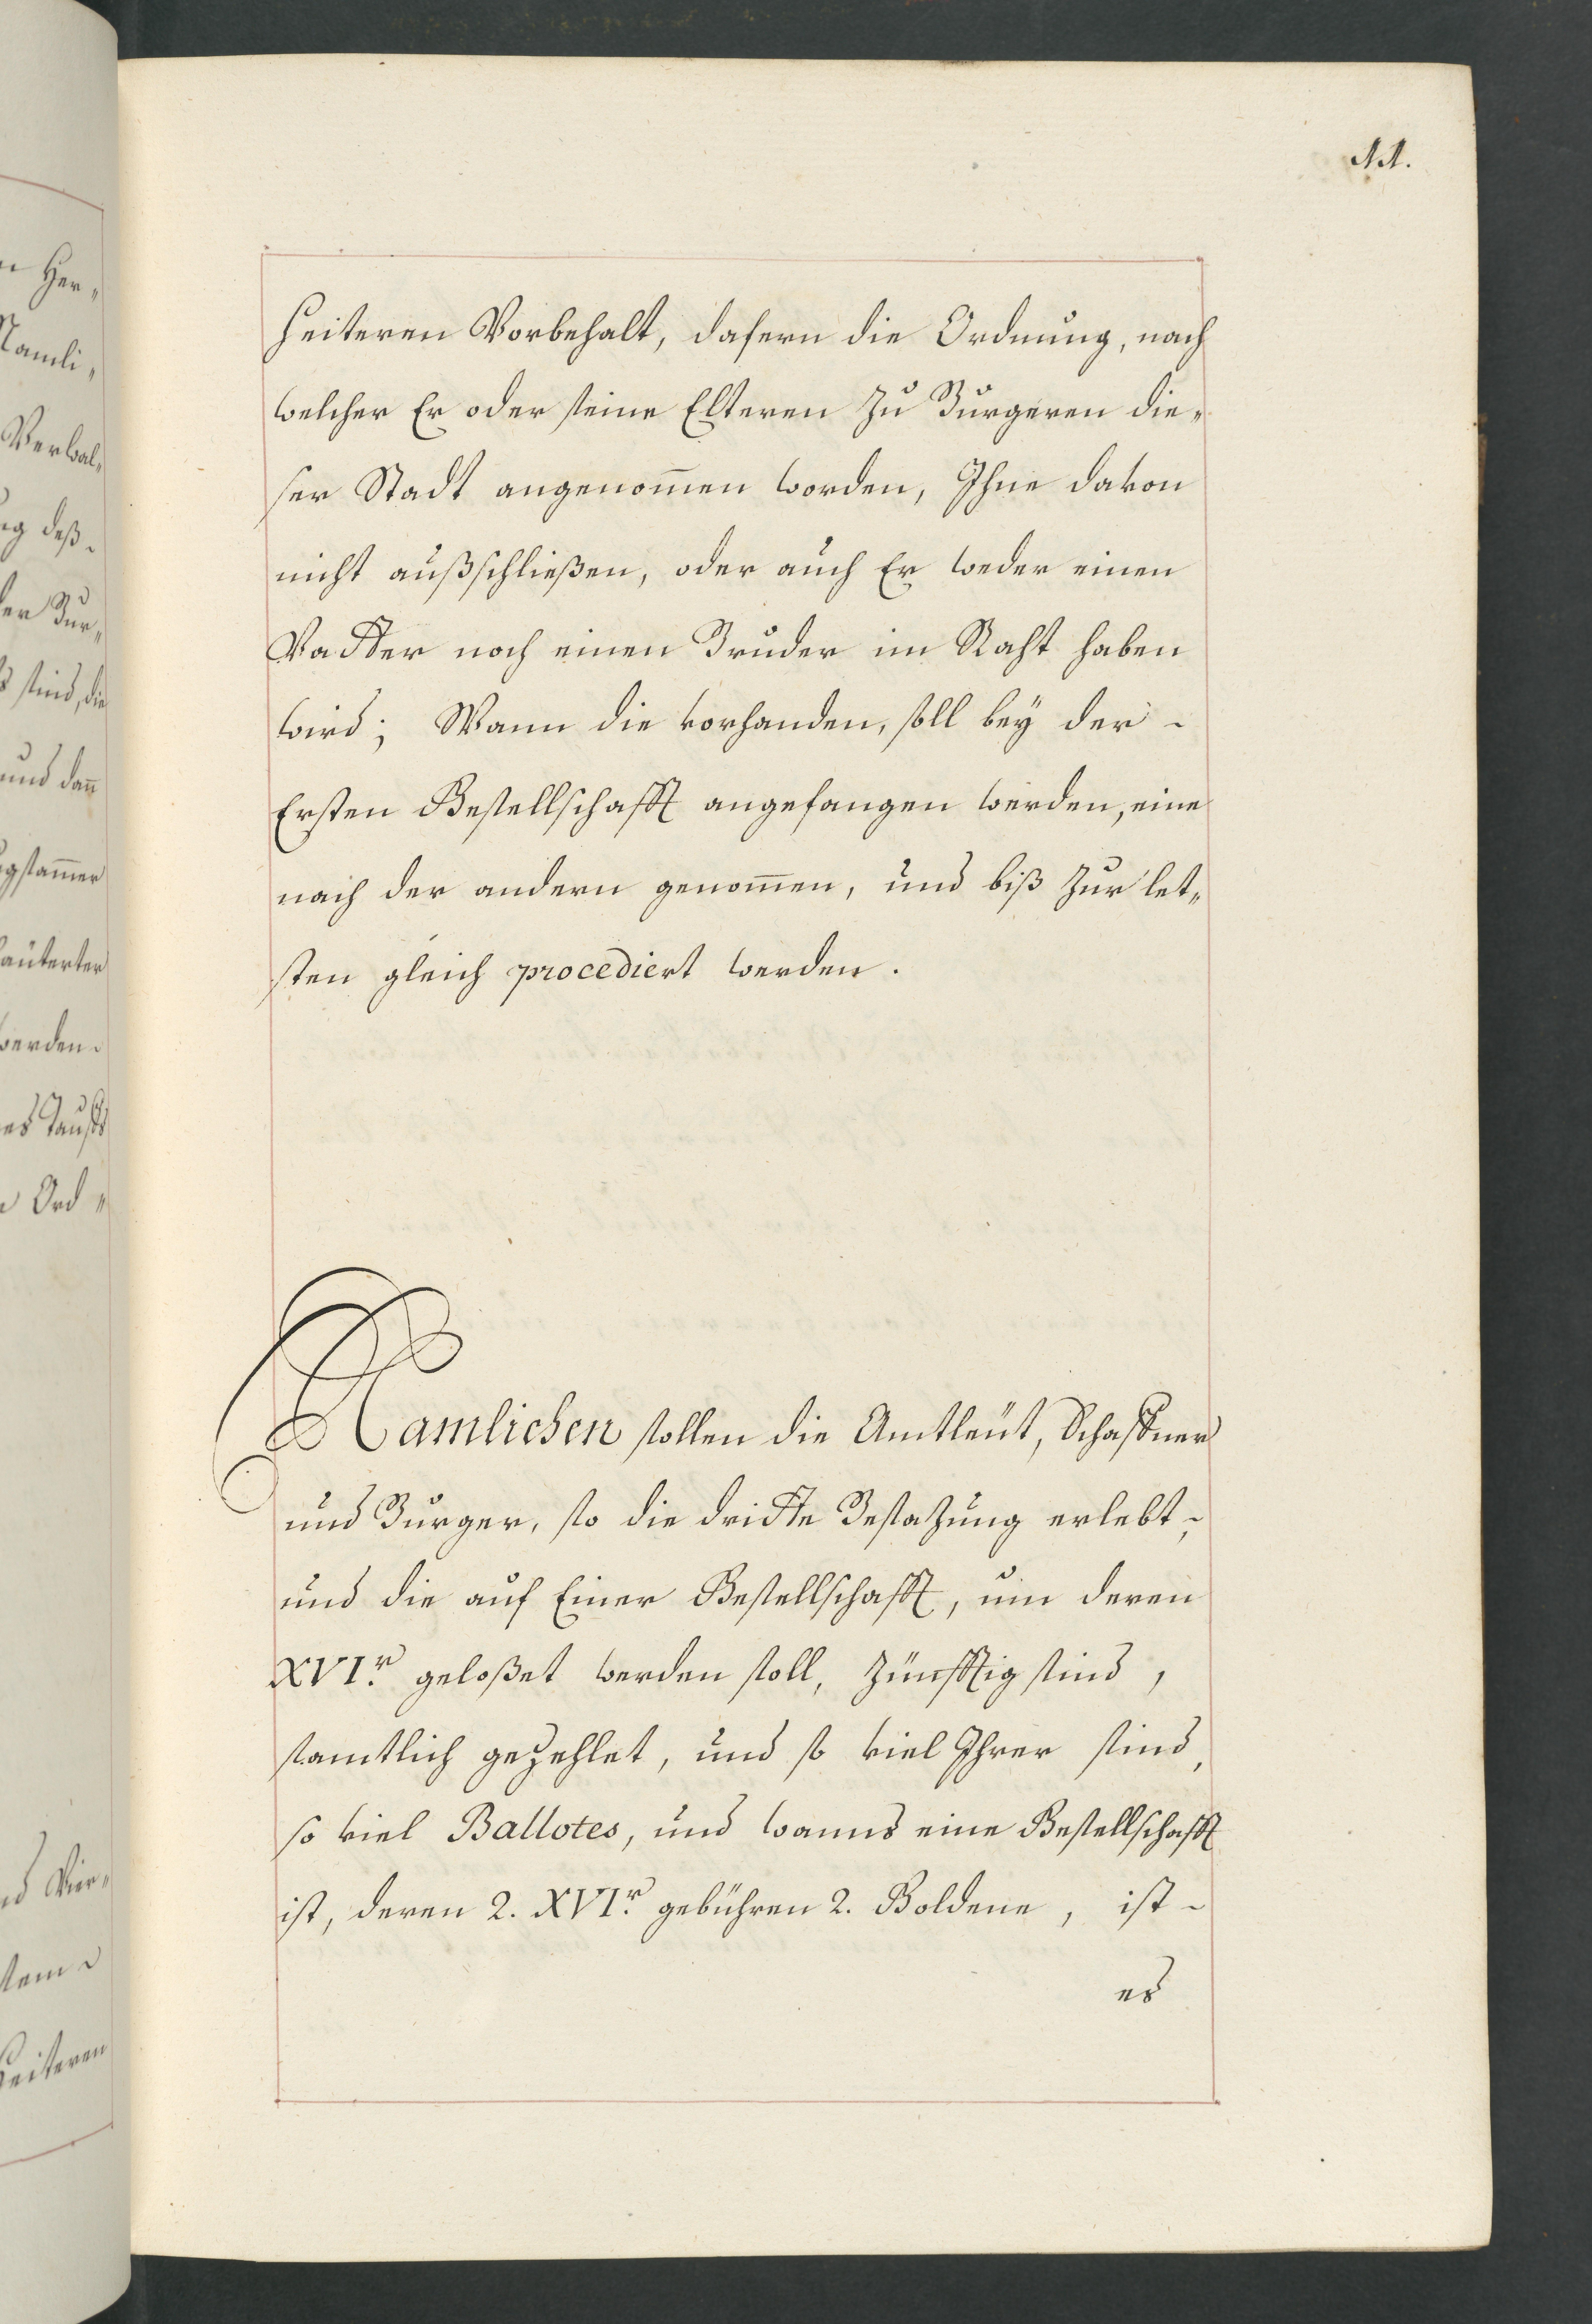 11.
heiteren Vorbehalt, dafern die Ordnung, nach
welcher Er oder seine Elteren zu Burgeren die„
ser Stadt angenom̅en worden, Ihne davon
nicht außschließen, oder auch Er weder einen
Vatter noch einen Bruder im Raht haben
wird; Wann die vorhanden, soll bey der -
Ersten Bestellschafft angefangen werden, eine
nach der andern genom̅en, und biß zur let„
sten gleich procediert werden.
Namlichen sollen die Amtleüt, Schaffner
und Burger, so die dritte Besatzung erlebt,
und die auf Einer Bestellschafft, um deren
XVIr. geloßet werden soll, zünfftig sind,
samtlich gezehlet, und so viel Ihrer sind,
so viel Ballotes, und wanns eine Bestellschafft
ist, deren 2. XVIr. gebühren 2. Boldene, ist -
es
n Her„
Namli„
Verwal„
ng deß-
der Bur„
s sind, die
und dan̅
gstam̅er
läuterter
werden-
es Tauffs
n Ord„
nd Vier„
heiteren